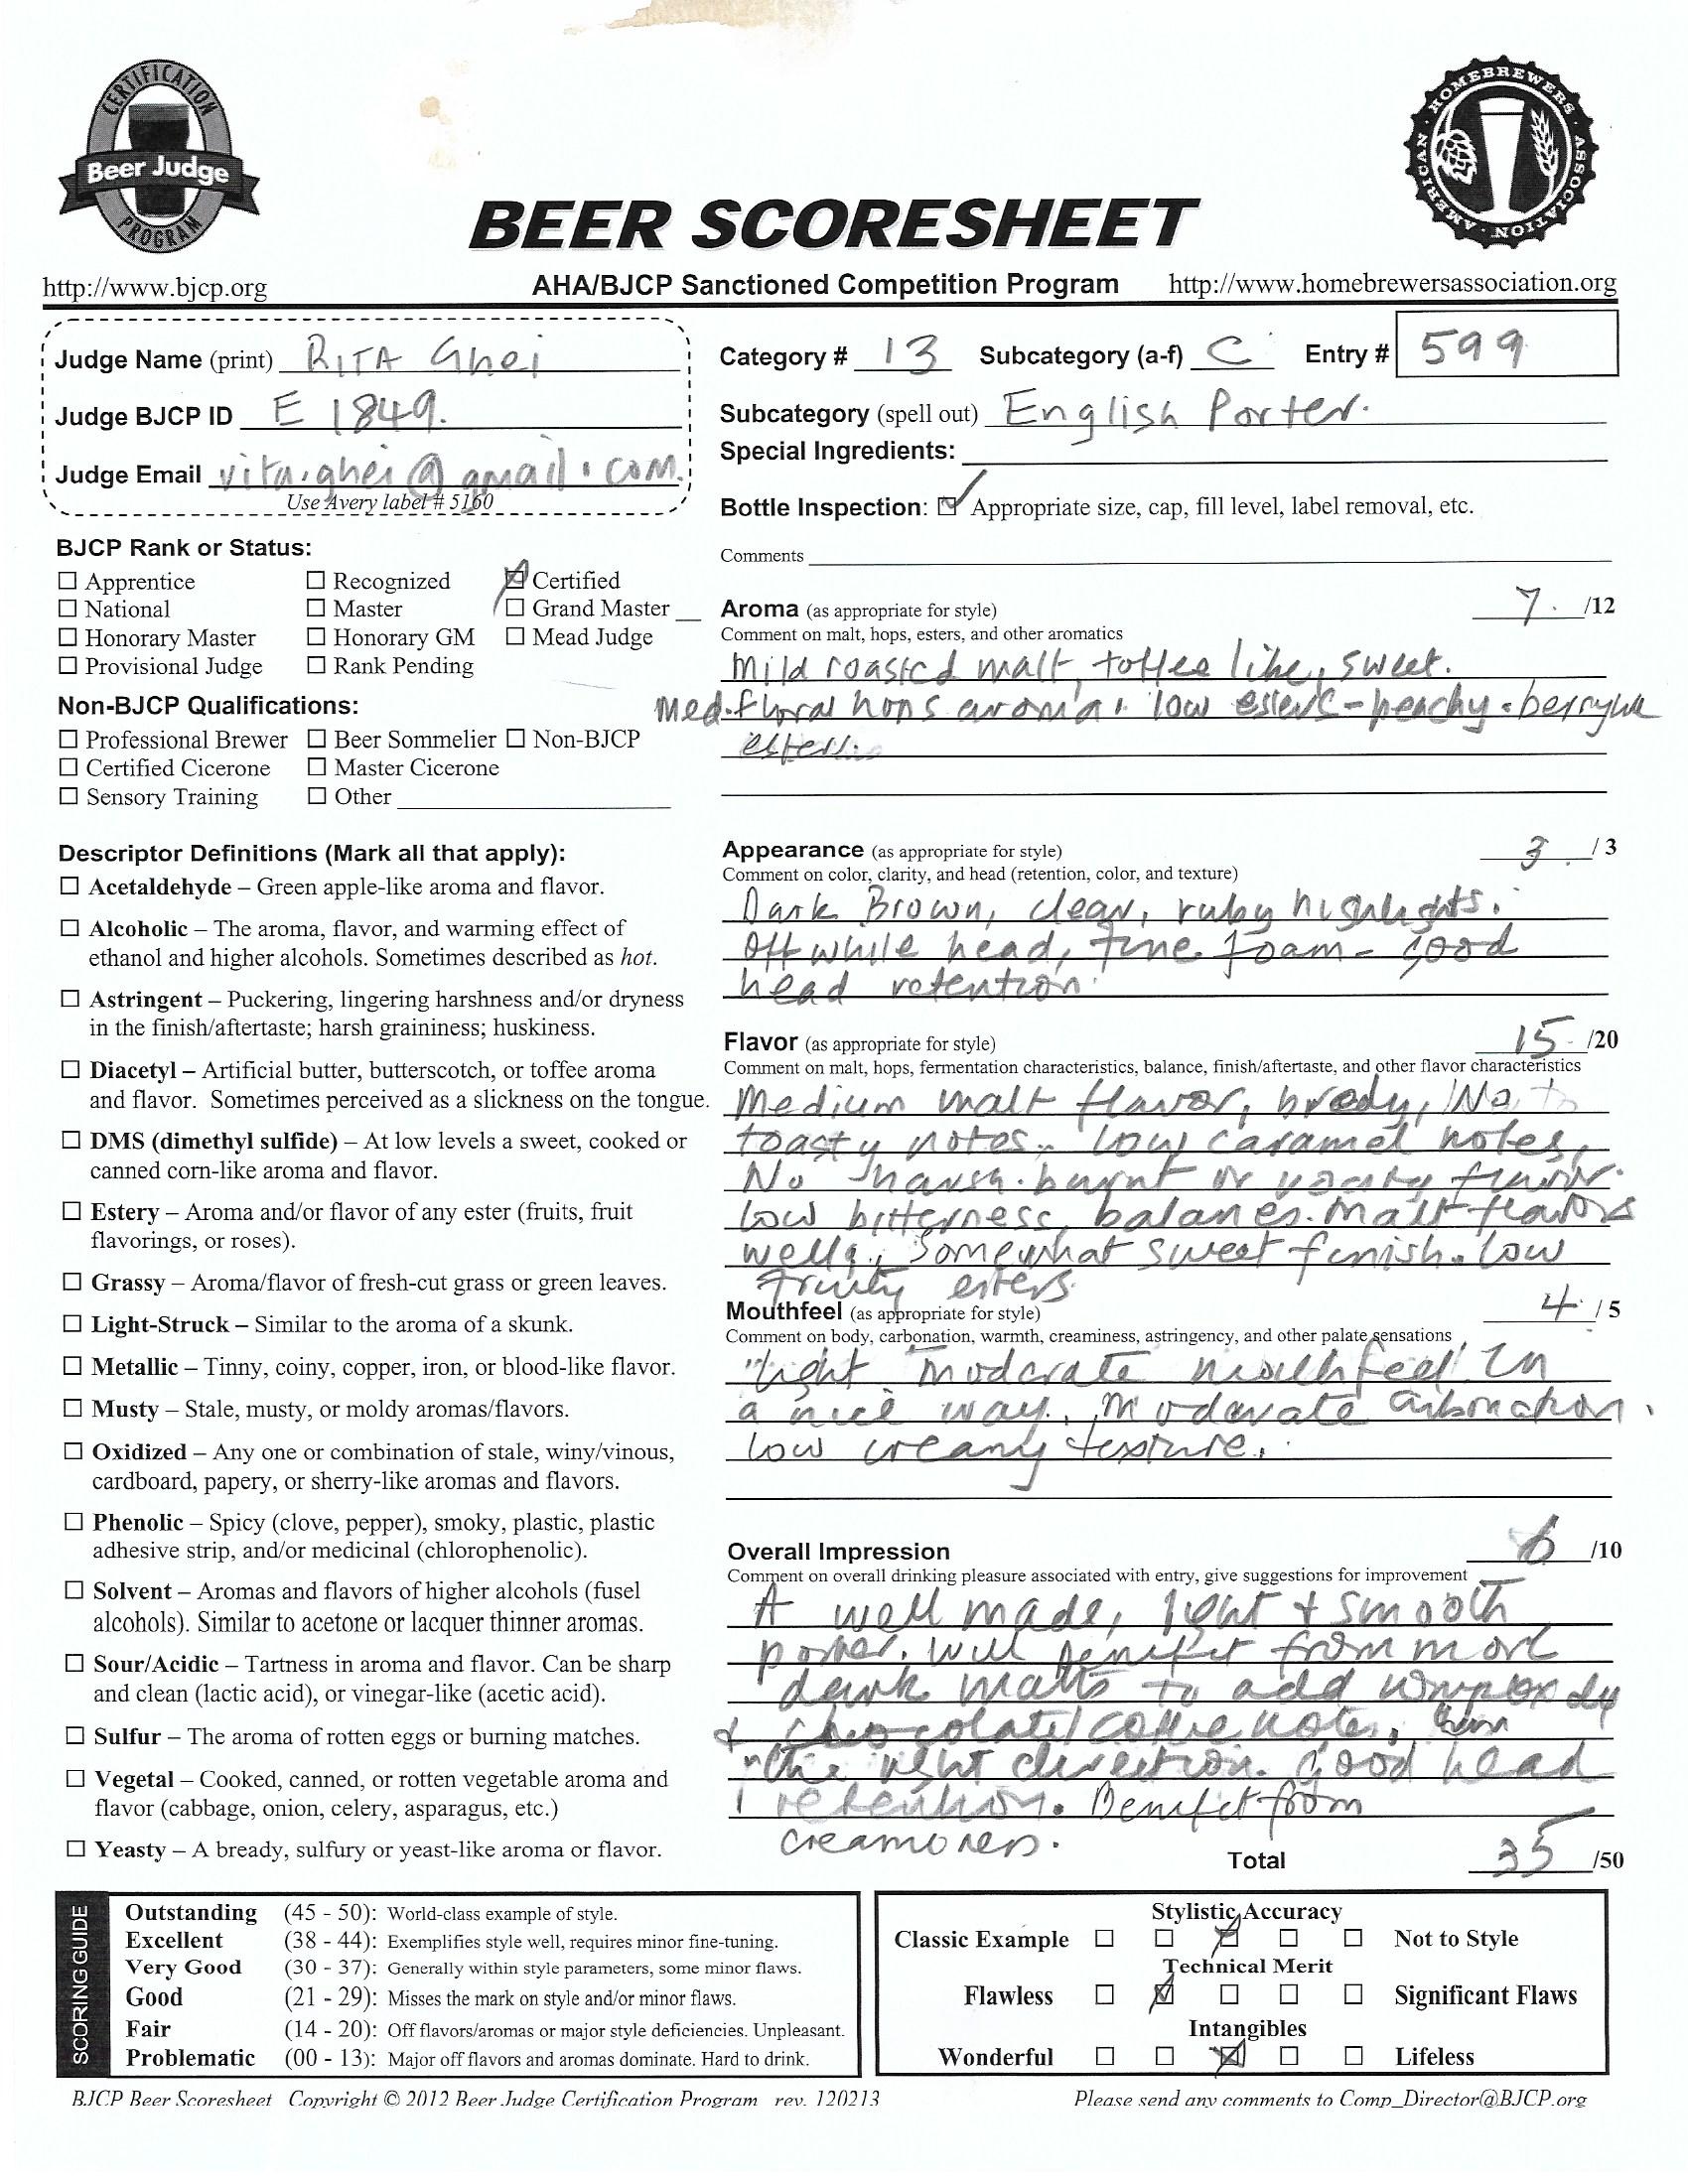 CERTIFICATION
Beer Judge
PROGRAM
AMERICAN · HOMEBREWERS · ASSOCIATION
BEER SCORESHEET
http://www.bjcp.org AHA/BJCP Sanctioned Competition Program http://www.homebrewersassociation.org
Judge Name (print) RITA Ghei
Judge BJCP ID E 1849.
Judge Email vita.ghei@gmail.com.
Use Avery label # 5160
BJCP Rank or Status:
☐ Apprentice ☐ Recognized ☑ Certified
☐ National ☐ Master ☐ Grand Master __
☐ Honorary Master ☐ Honorary GM ☐ Mead Judge
☐ Provisional Judge ☐ Rank Pending
Non-BJCP Qualifications:
☐ Professional Brewer ☐ Beer Sommelier ☐ Non-BJCP
☐ Certified Cicerone ☐ Master Cicerone
☐ Sensory Training ☐ Other
Descriptor Definitions (Mark all that apply):
☐ Acetaldehyde – Green apple-like aroma and flavor.
☐ Alcoholic – The aroma, flavor, and warming effect of
ethanol and higher alcohols. Sometimes described as hot.
☐ Astringent – Puckering, lingering harshness and/or dryness
in the finish/aftertaste; harsh graininess; huskiness.
☐ Diacetyl – Artificial butter, butterscotch, or toffee aroma
and flavor. Sometimes perceived as a slickness on the tongue.
☐ DMS (dimethyl sulfide) – At low levels a sweet, cooked or
canned corn-like aroma and flavor.
☐ Estery – Aroma and/or flavor of any ester (fruits, fruit
flavorings, or roses).
☐ Grassy – Aroma/flavor of fresh-cut grass or green leaves.
☐ Light-Struck – Similar to the aroma of a skunk.
☐ Metallic – Tinny, coiny, copper, iron, or blood-like flavor.
☐ Musty – Stale, musty, or moldy aromas/flavors.
☐ Oxidized – Any one or combination of stale, winy/vinous,
cardboard, papery, or sherry-like aromas and flavors.
☐ Phenolic – Spicy (clove, pepper), smoky, plastic, plastic
adhesive strip, and/or medicinal (chlorophenolic).
☐ Solvent – Aromas and flavors of higher alcohols (fusel
alcohols). Similar to acetone or lacquer thinner aromas.
☐ Sour/Acidic – Tartness in aroma and flavor. Can be sharp
and clean (lactic acid), or vinegar-like (acetic acid).
☐ Sulfur – The aroma of rotten eggs or burning matches.
☐ Vegetal – Cooked, canned, or rotten vegetable aroma and
flavor (cabbage, onion, celery, asparagus, etc.)
☐ Yeasty – A bready, sulfury or yeast-like aroma or flavor.
Category # 13 Subcategory (a-f) C Entry # 599
Subcategory (spell out) English Porter.
Special Ingredients:
Bottle Inspection: ☑ Appropriate size, cap, fill level, label removal, etc.
Comments
Aroma (as appropriate for style) 7. /12
Comment on malt, hops, esters, and other aromatics
Mild roasted malt, toffee like, sweet.
Med. floral hops aroma. low esters - peachy - berry
esters.
Appearance (as appropriate for style) 3 /3
Comment on color, clarity, and head (retention, color, and texture)
Dark Brown, clear, ruby highlights.
Off white head, fine foam - good
head retention.
Flavor (as appropriate for style) 15 /20
Comment on malt, hops, fermentation characteristics, balance, finish/aftertaste, and other flavor characteristics
Medium malt flavor, bredy, No
toasty notes. low caramel notes,
No harsh burnt or flavor.
low bitterness balances. malt flavors
well, Somewhat sweet finish. low
fruity esters.
Mouthfeel (as appropriate for style) 4 /5
Comment on body, carbonation, warmth, creaminess, astringency, and other palate sensations
"light moderate mouthfeel" in
a nice way. Moderate carbonation.
low creamy texture.
Overall Impression 6 /10
Comment on overall drinking pleasure associated with entry, give suggestions for improvement
A well made, light + smooth
porter. will benefit from more
dark malts to add
+ chocolate/coffee notes,
the right direction. Good head
retention. Benefit from
Total 35 /50
SCORING GUIDE
Outstanding (45 - 50): World-class example of style.
Excellent (38 - 44): Exemplifies style well, requires minor fine-tuning.
Very Good (30 - 37): Generally within style parameters, some minor flaws.
Good (21 - 29): Misses the mark on style and/or minor flaws.
Fair (14 - 20): Off flavors/aromas or major style deficiencies. Unpleasant.
Problematic (00 - 13): Major off flavors and aromas dominate. Hard to drink.
Stylistic Accuracy
Classic Example ☐ ☐ ☒ ☐ ☐ Not to Style
Technical Merit
Flawless ☐ ☒ ☐ ☐ ☐ Significant Flaws
Intangibles
Wonderful ☐ ☐ ☒ ☐ ☐ Lifeless
BJCP Beer Scoresheet Copyright © 2012 Beer Judge Certification Program rev. 120213
Please send any comments to Comp_Director@BJCP.org